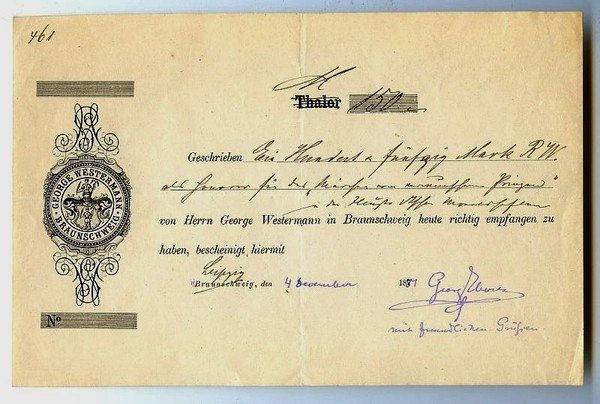 461
M
Thaler 150.
GEORGE WESTERMANN
BRAUNSCHWEIG
Geschrieben Ein Hundert & fünfzig Mark R. W.
als Honorar für das Märchen vom Prinzen"
in
von Herrn George Westermann in Braunschweig heute richtig empfangen zu
haben, bescheinigt hiermit
Leipzig
Braunschweig, den 4 December 187 Georg Ebers
mit freundlichen Grüßen.
No